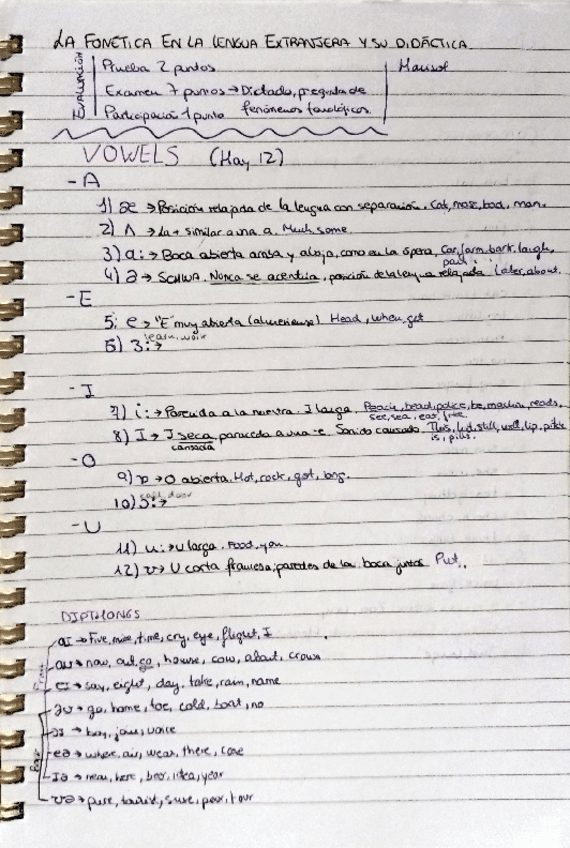 LA FONÉTICA EN LA LENGUA EXTRANJERA Y SU DIDÁCTICA
EVALUACIÓN
Prueba 2 puntos
Marisol
Examen 7 puntos → Dictado, preguntas de
Participación 1 punto fenómenos fonológicos.
VOWELS (Hay 12)
- A
1) æ → Posición relajada de la lengua con separación. Cat, bad, man.
2) ʌ → La + similar a una a. Much, some.
3) ɑ: → Boca abierta arriba y abajo, como en la ópera. Car, farm, bark, laugh,
4) ə → SCHWA. Nunca se acentúa, posición de la lengua relajada Later, about.
- E
5) e → "E" muy abierta (almeriense). Head, when, get
learn,
6) 3: →
- I
7) i: → Parecida a la nuestra. I larga. Peach, bead, police, be, machine, reads,
see, sea, eat,
8) I → I seca, parecida a una e. Sonido cansado. This, lid, still, well, lip,
cansada is, pills.
- O
9) ɒ → O abierta. Hot, rock, got, long.
door
10) ɔ: →
- U
11) u: → U larga. Food, you.
12) ʊ → U corta francesa, paredes de la boca juntas Put.
DIPTHONGS
aɪ → Five, time, cry, eye, flight, I
aʊ → now, out, house, cow, about, crown
eɪ → say, eight, day, take, rain, name
əʊ → go, home, toe, cold, boat, no
ɔɪ → boy, join, voice
eə → where, air, wear, there, care
ɪə → near, here, idea, year
ʊə → pure, tourist, sure, poor, tour